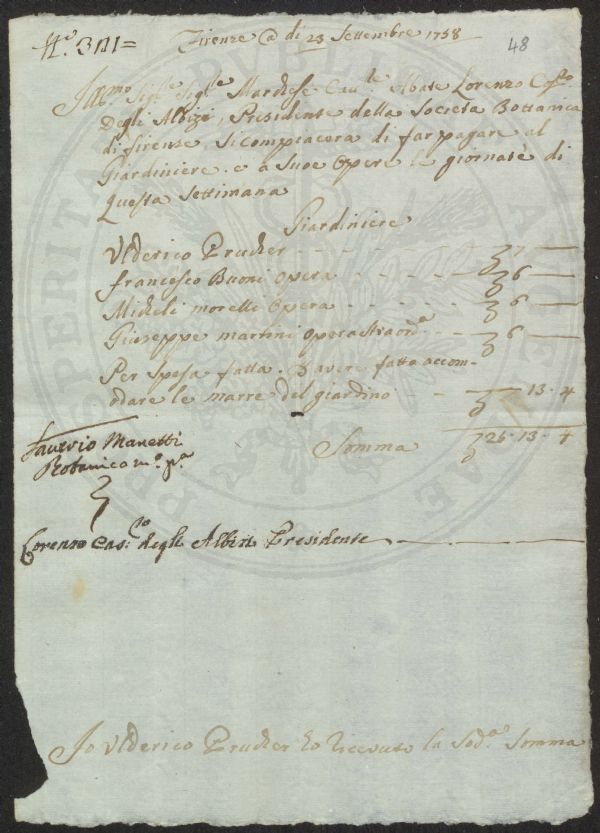 N.º 311=
Firenze @ di 23 Settembre 1758
48
Ill.mo Sig.re Sig.re Marchese Cau.re Abate Lorenzo Cas.o
Degli Albizi, Presidente della Società Bottanica
di firenze si compiacera di far pagare al
Giardiniere, e a Suoe Opere le giornate di
questa Settimana
Giardiniere
Ulderico Prucker - - - 7 —
francesco Buoni Opera - - - 6 —
Micheli morelli Opera - - - 6 —
Giuseppe martini opera straord.a - - 6 —
Per Spesa fatta. D avere fatta accom-
dare le marre del giardino - - — 13 - 4
Somma 25 - 13 - 4
Saverio Manetti
Botanico m.o p.a
Lorenzo Cas: degli Albizi Presidente
Io Ulderico Prucker ho riceuuto la Sod.a Somma